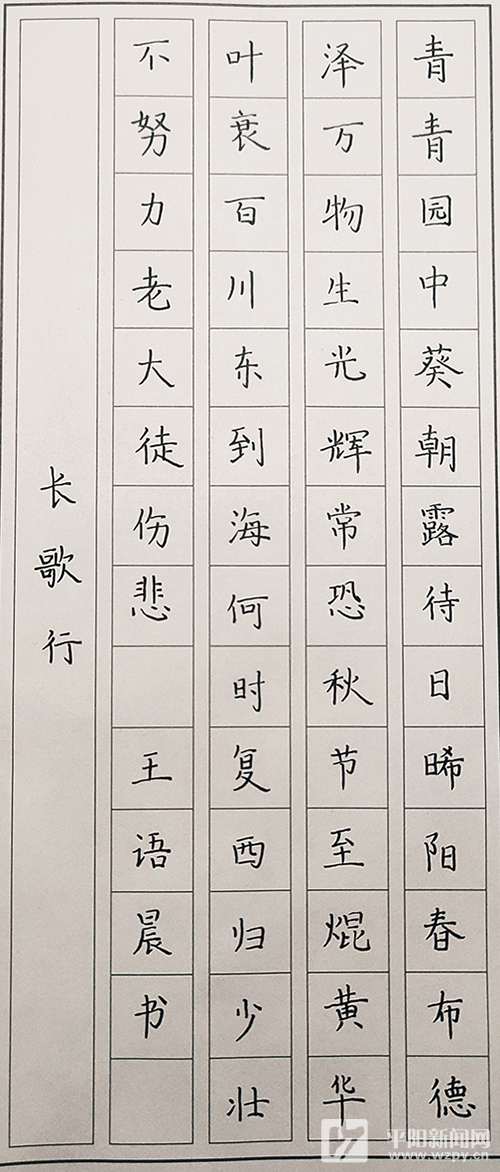 青青园中葵朝露待日晞阳春布德
泽万物生光辉常恐秋节至焜黄华
叶衰百川东到海何时复西归少壮
不努力老大徒伤悲 王语晨书
长歌行
平阳新闻网
www.wzpy.cn